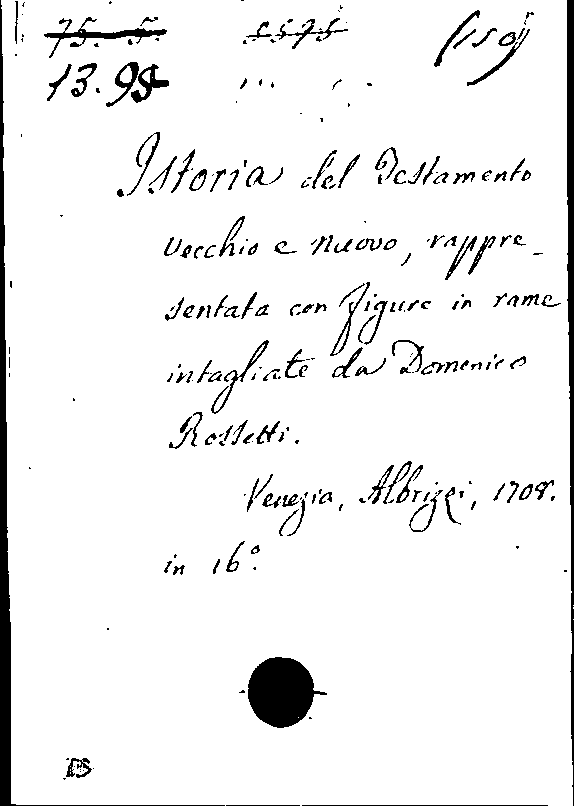 75. 5. 5575 (150)
13. 95
Istoria del Testamento
Vecchio e nuovo, rappre-
sentata con figure in rame
intagliate da Domenico
Rossetti.
Venezia, Albrizzi, 1708.
in 16°.